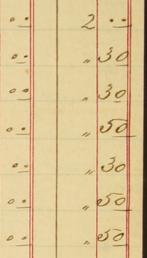 .. 2 ..
.. „ 30
.. „ 30
.. „ 50
.. „ 30
.. „ 50
.. „ 50